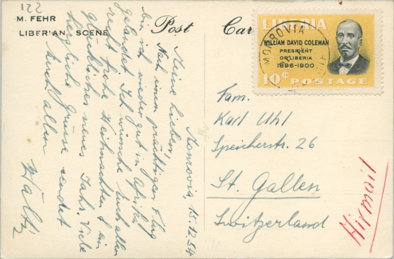 122
M. FEHR
LIBERIAN SCENE
Post Car
LIBERIA
WILLIAM DAVID COLEMAN
PRESIDENT
OF LIBERIA
1896-1900
10¢ POSTAGE
MONROVIA
Monrovia, 15.12.54
Meine Lieben,
Nach einem prächtigen Flug
bin ich wieder gut in Afrika
gelandet. Ich wünsche Euch allen
frohe Weihnachten &
glückliches neues Jahr. Viele
herzliche Grüsse sendet
Euch allen
Fam.
Karl Uhl
Speicherstr. 26
St. Gallen
Switzerland
Airmail